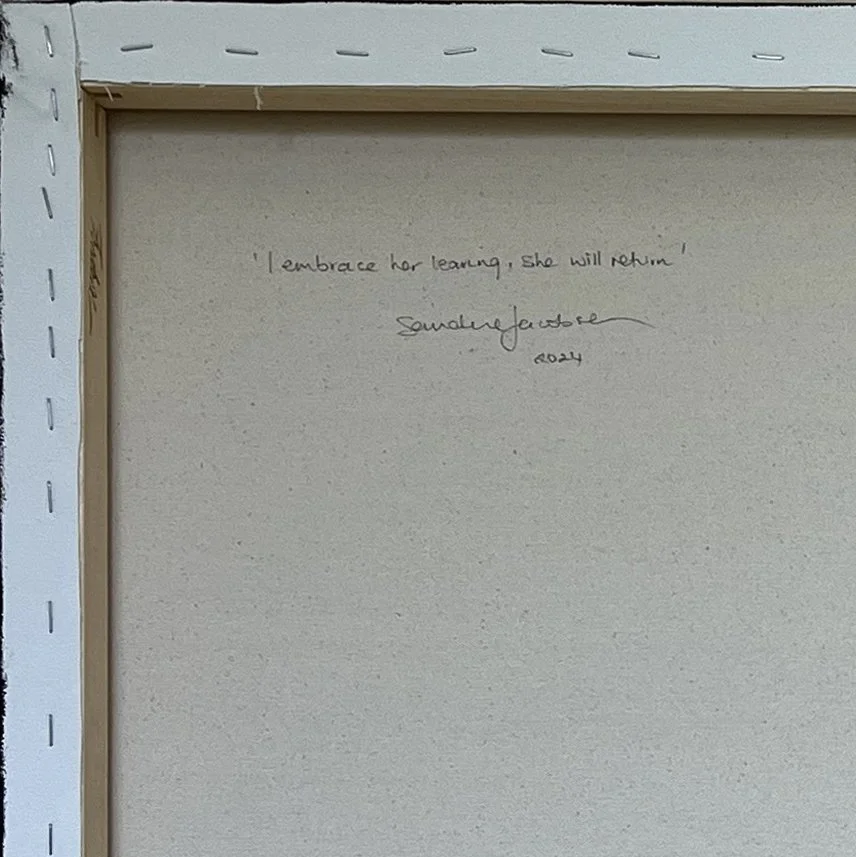 'I embrace her leaving, she will return'
Jacobsen
2024